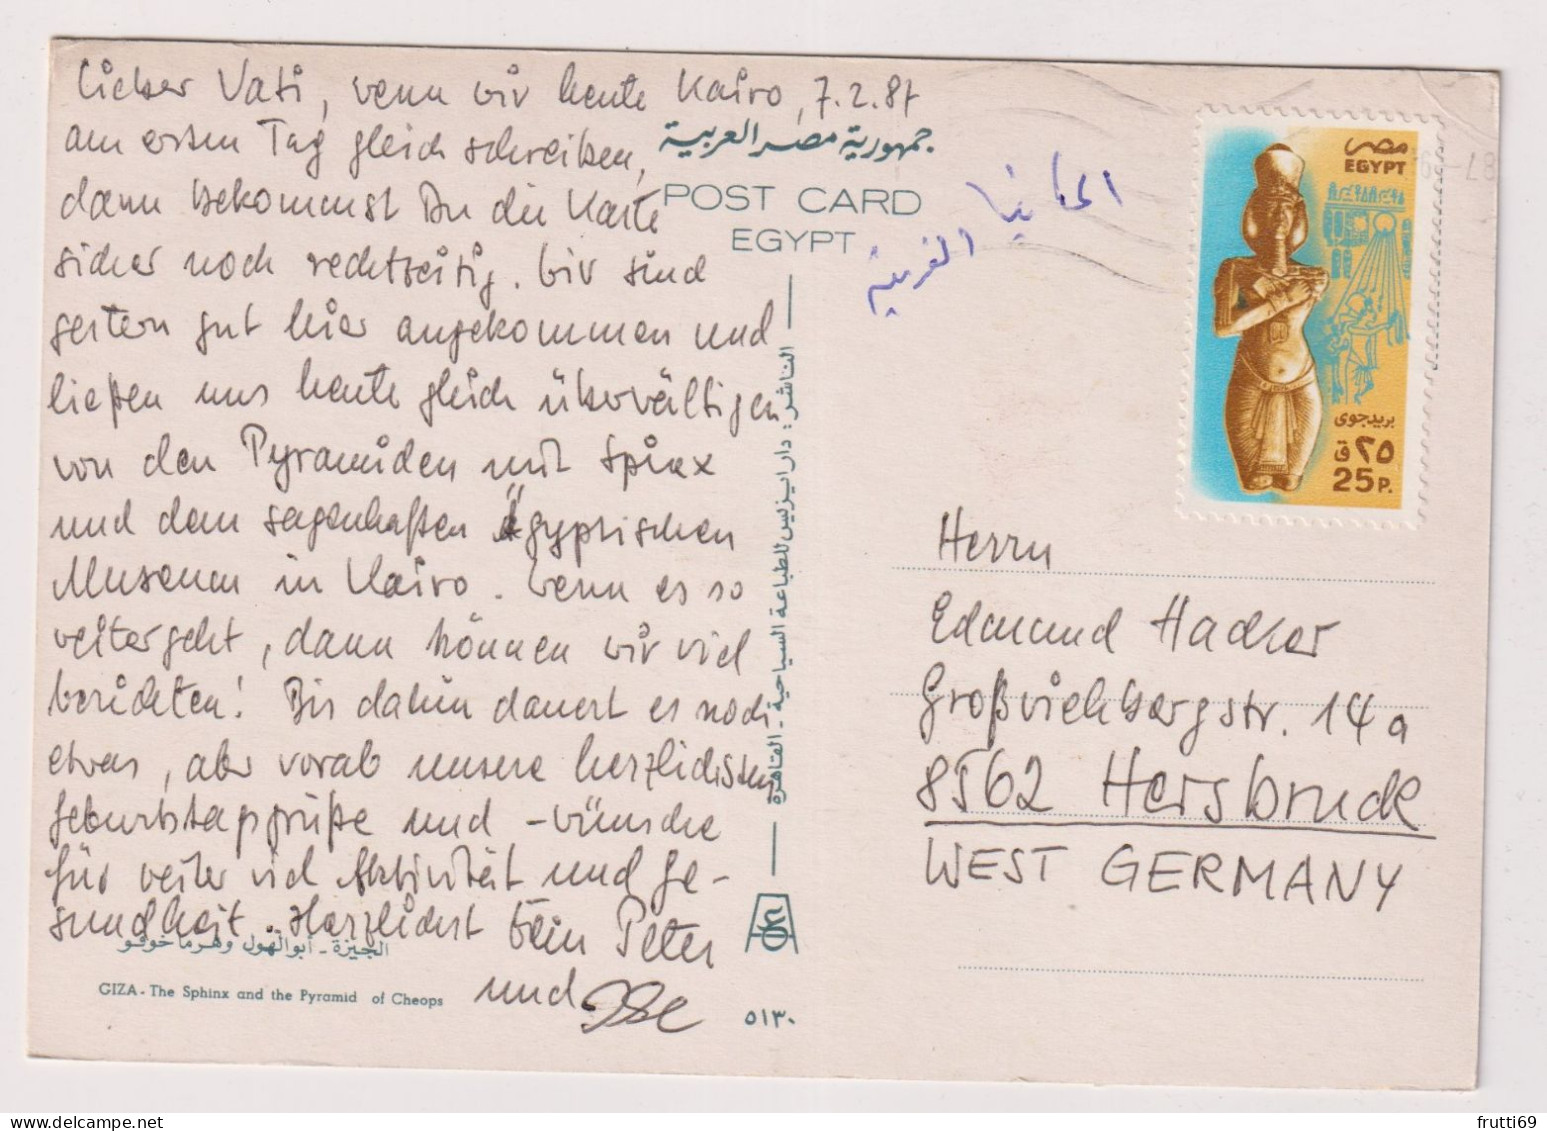 Lieber Vati, wenn wir heute Kairo, 7.2.87
am ersten Tag gleich schreiben,
dann bekommst Du die Karte
sicher noch rechtzeitig. Wir sind
gestern gut hier angekommen und
ließen uns heute gleich überwältigen
von den Pyramiden mit Spinx
und dem sagenhaften Ägyptischen
Museum in Kairo. Wenn es so
weitergeht, dann können wir viel
berichten! Bis dahin dauert es noch
etwas, aber vorab unsere herzlichsten
Geburtstagsgrüße und -wünsche
für weiter viel Aktivität und Ge-
sundheit. Herzlichst Dein Peter
und Ilse
الجيزة - أبوالهول وهرما خوفو
GIZA - The Sphinx and the Pyramid of Cheops
جمهورية مصر العربية
POST CARD
EGYPT
المانيا
الغربية
الناشر : دار ايزيس للطباعة السياحية - القاهرة
٥١٣٠
مصر
EGYPT
بريد جوى
٢٥ ق
25 P.
87
Herrn
Edmund Hacker
Großviehbergstr. 14a
8562 Hersbruck
WEST GERMANY
frutti69